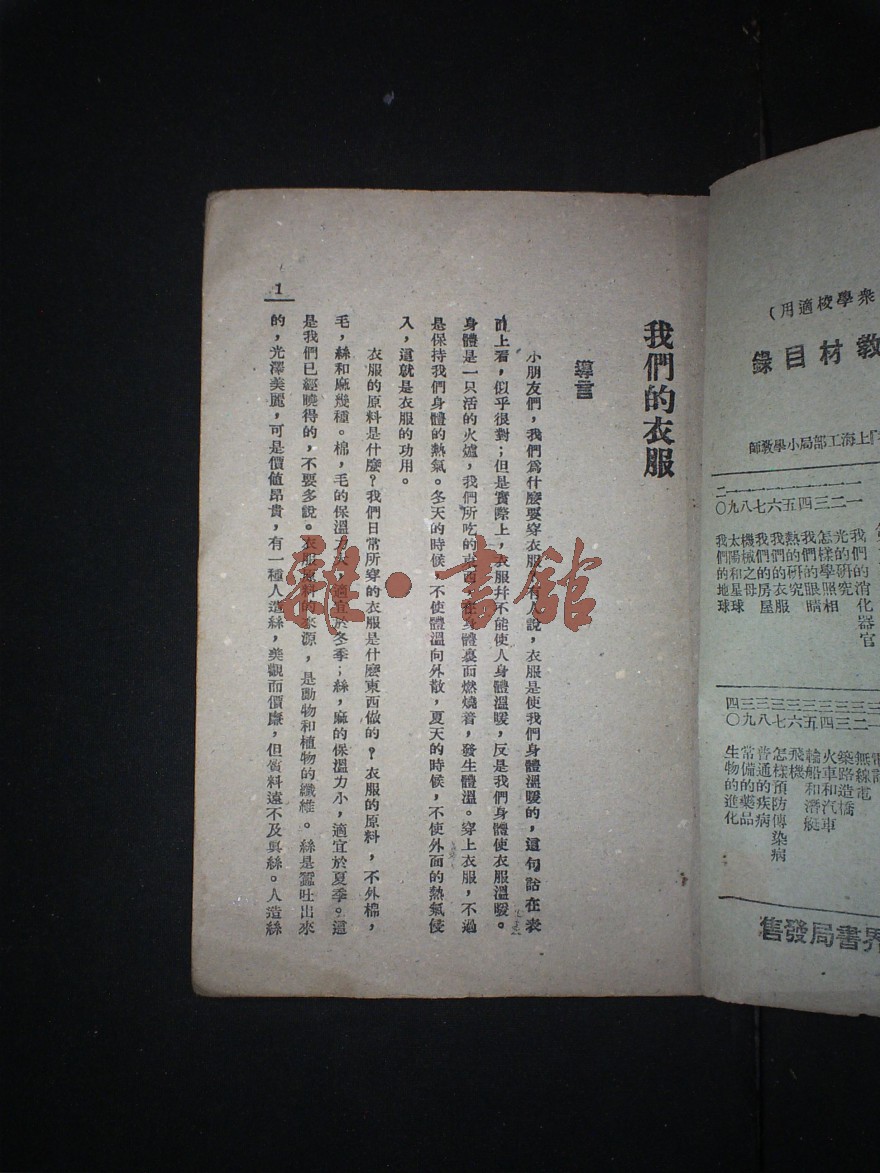 衆學校適用）
教材目錄
上海工部局小學教師
一一 我們的消化器官
一二 光的研究
一三 怎樣學照相
一四 我們的眼睛
一五 熱的研究
一六 我們的衣服
一七 我們的房屋
一八 機械之母
一九 太陽和星球
二〇 我們的地球
三二 無線電
三三 築路造橋
三四 火車和汽車
三五 輪船和潛艇
三六 飛機
三七 怎樣預防傳染病
三八 普通的疾病
三九 常備的藥品
四〇 生物的進化
界書局發售
我們的衣服
導言
小朋友們，我們爲什麼要穿衣服？有人說，衣服是使我們身體溫暖的，這句話在表
面上看，似乎很對；但是實際上，衣服幷不能使人身體溫暖，反是我們身體使衣服溫暖。
身體是一只活的火爐，我們所吃的東西，在身體裏面燃燒着，發生體溫。穿上衣服，不過
是保持我們身體的熱氣。冬天的時候，不使體溫向外散，夏天的時候，不使外面的熱氣侵
入，這就是衣服的功用。
衣服的原料是什麼？我們日常所穿的衣服是什麼東西做的？衣服的原料，不外棉，
毛，絲和麻幾種。棉，毛的保溫力大，適宜於冬季；絲，麻的保溫力小，適宜於夏季。這
是我們已經曉得的，不要多說。衣服原料的來源，是動物和植物的纖維。絲是蠶吐出來
的，光澤美麗，可是價値昂貴，有一種人造絲，美觀而價廉，但質料遠不及眞絲。人造絲
1
雜·書館